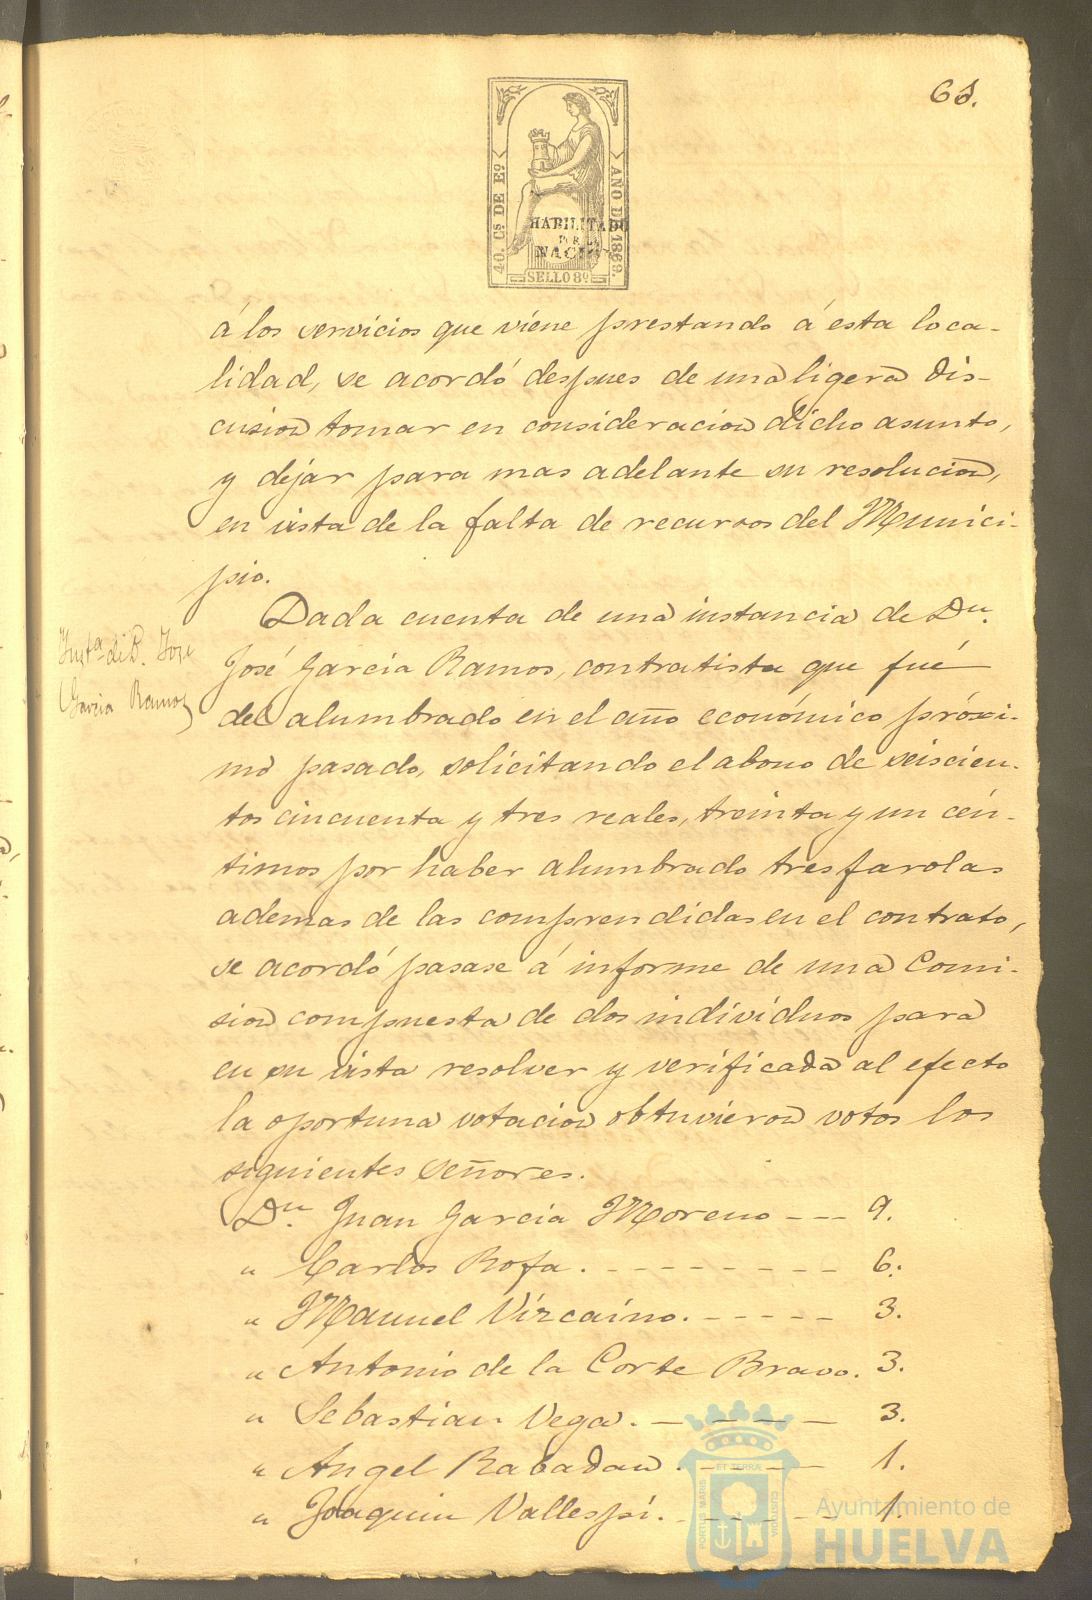 68.
40. Cs DE Eo.
AÑO DE 1869.
HABILITADO
POR LA
NACION
SELLO 8º
á los servicios que viene prestando á esta loca-
lidad, se acordó despues de una ligera dis-
cusion tomar en consideracion dicho asunto,
y dejar para mas adelante su resolucion,
en vista de la falta de recursos del Munici-
pio.
Insta. de D. Jose
Garcia Ramos
Dada cuenta de una instancia de Dn.
José Garcia Ramos, contratista que fué
del alumbrado en el año económico próxi-
mo pasado, solicitando el abono de seiscien-
tos cincuenta y tres reales, treinta y un cén-
timos por haber alumbrado tres farolas
ademas de las comprendidas en el contrato,
se acordó pasase á informe de una Comi-
sion compuesta de dos individuos para
en su vista resolver y verificada al efecto
la oportuna votacion obtuvieron votos los
siguientes señores.
Dn. Juan Garcia Moreno --- 9.
" Carlos Rofa. --------- 6.
" Manuel Vizcaino. ----- 3.
" Antonio de la Corte Bravo. 3.
" Sebastian Vega. ---- 3.
" Angel Rabadan. ---- 1.
" Joaquin Vallespi. ----- 1.
PORTUS MARIS
ET TERRÆ
CUSTODIA
Ayuntamiento de
HUELVA